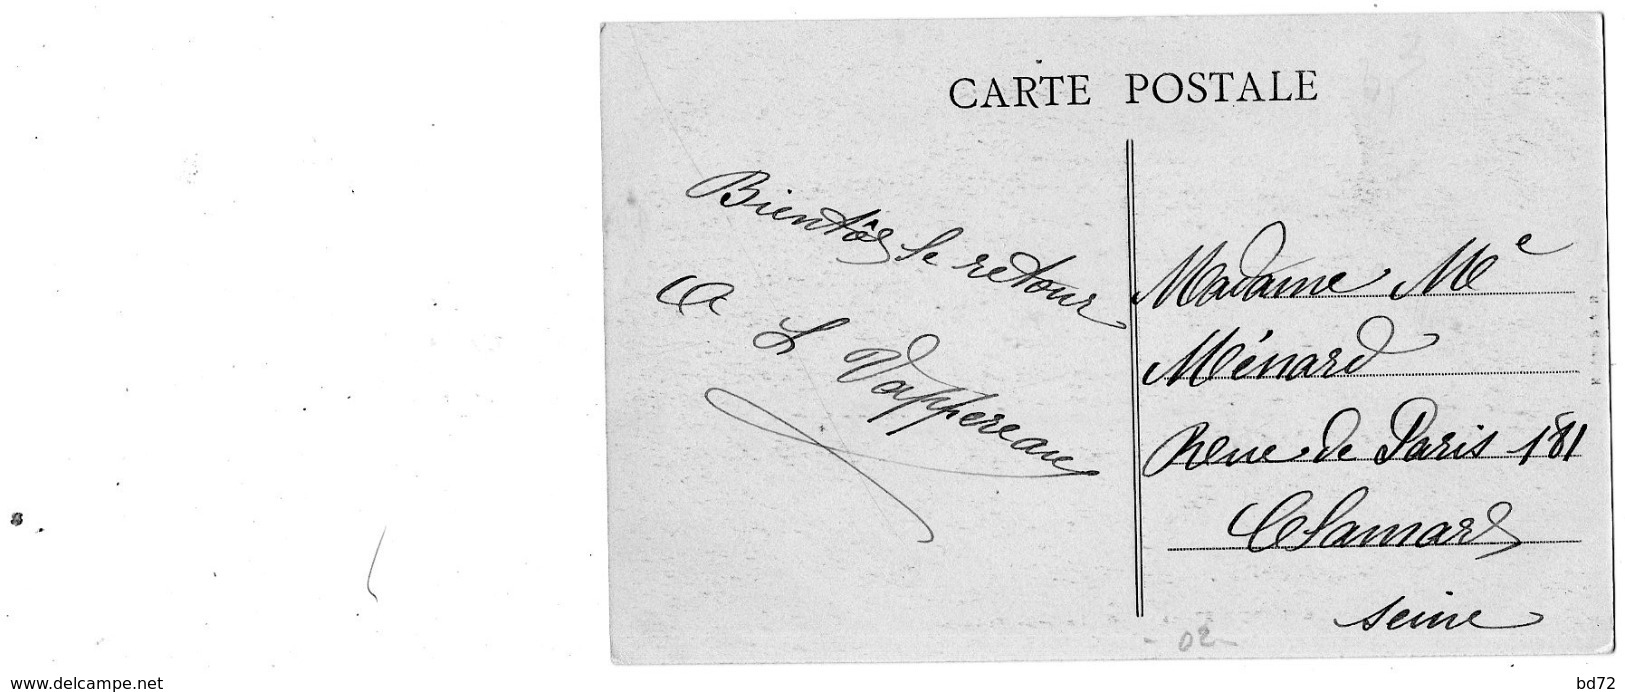 CARTE POSTALE
Bientôt le retour
L Vappereau
Madame Me
Ménard
Rue de Paris 181
Clamart
Seine
02
www.delcampe.net
bd72